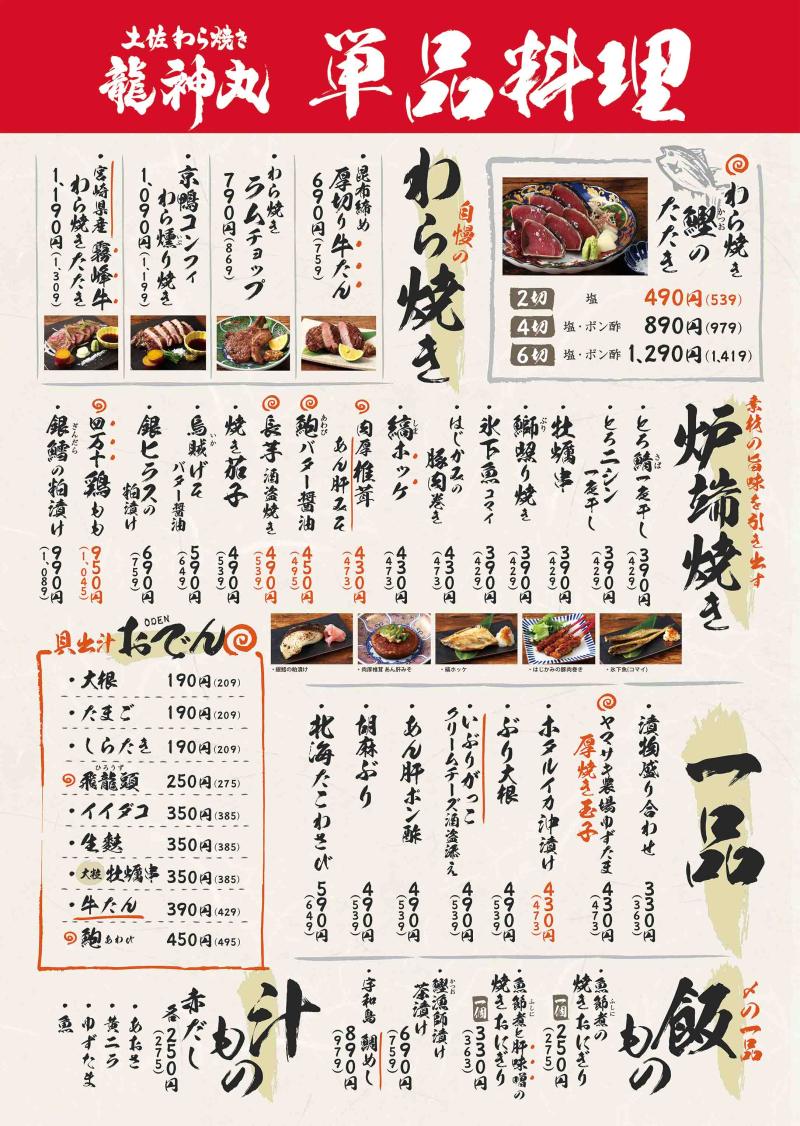 土佐わら焼き
龍神丸
単品料理
わら焼き
鰹の
かつお
たたき
2切 塩 490円(539)
4切 塩・ポン酢 890円(979)
6切 塩・ポン酢 1,290円(1,419)
自慢の
わら焼き
・昆布締め
厚切り牛たん
690円(759)
・わら焼き
ラムチョップ
790円(869)
・京鴨コンフィ
わら燻り焼き
いぶ
1,090円(1,199)
・宮崎県産 霧峰牛
わら焼きたたき
1,190円(1,309)
素材の旨味を引き出す
炉端焼き
・とろ鯖一夜干し
さば
390円(429)
・とろニシン
一夜干し
390円(429)
・牡蠣串
390円(429)
・鰤照り焼き
ぶり
390円(429)
・氷下魚コマイ
390円(429)
・はじかみの
豚肉巻き
430円(473)
・縞ホッケ
しま
430円(473)
肉厚椎茸
あん肝みそ
430円(473)
鮑バター醤油
あわび
450円(495)
長芋酒盗焼き
490円(539)
・焼き茄子
490円(539)
・烏賊げそ
いか
バター醤油
590円(649)
・銀ヒラスの
粕漬け
690円(759)
四万十鶏もも
950円(1,045)
・銀鱈の粕漬け
ぎんだら
990円(1,089)
・銀鱈の粕漬け
・肉厚椎茸 あん肝みそ
・縞ホッケ
・はじかみの豚肉巻き
・氷下魚(コマイ)
貝出汁
おでん
ODEN
・大根 190円(209)
・たまご 190円(209)
・しらたき 190円(209)
ひろうず
飛龍頭 250円(275)
・イイダコ 350円(385)
・生麩 350円(385)
・大粒 牡蠣串 350円(385)
・牛たん 390円(429)
鮑 あわび 450円(495)
一品
・漬物盛り合わせ
330円(363)
ヤマサキ農場ゆずたま
厚焼き玉子
430円(473)
・ホタルイカ沖漬け
430円(473)
・ぶり大根
490円(539)
・いぶりがっこ
クリームチーズ酒盗添え
490円(539)
・あん肝ポン酢
490円(539)
・胡麻ぶり
490円(539)
・北海たこわさび
590円(649)
〆の一品
飯もの
・魚節煮の
ふしに
焼きおにぎり
一個 250円(275)
・魚節煮と肝味噌の
ふしに
焼きおにぎり
一個 330円(363)
・鰹漁師漬け
かつお
茶漬け
690円(759)
・宇和島 鯛めし
890円(979)
汁もの
赤だし
各250円(275)
・あおさ
・黄ニラ
・ゆずたま
・魚